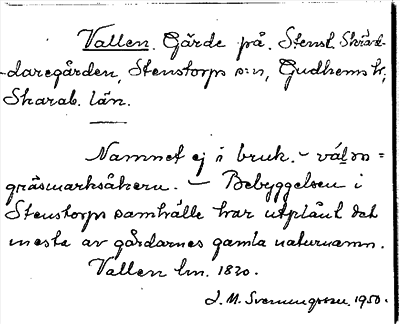 Vallen. Gärde på. Stenst. Skräd-
-daregården, Stenstorps s:n, Gudhems h.,
Skarab. län.
Namnet ej i bruk. –
gräsmarksåkern. – Bebyggelsen i
Stenstorps samhälle har utplånt det
mesta av gårdarnes gamla naturnamn.
Vallen lm. 1820.
J. M. 1950.